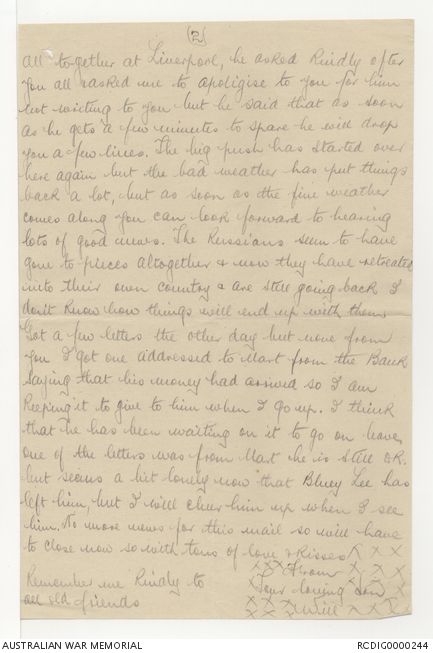 (2)
all together at Liverpool, he asked kindly after
you all & asked me to apoligise to you for him
not writing to you but he said that as soon
as he gets a few minutes to spare he will drop
you a few lines. The big push has started over
here again but the bad weather has put things
back a lot, but as soon as the fine weather
comes along you can look forward to hearing
lots of good news. The Russians seem to have
gone to pieces altogether & now they have retreated
into their own country & are still going back I
don't know how things will end up with them
Got a few letters the other day but none from
you I got one addressed to Mart from the Bank
saying that his money had arrived so I am
keeping it to give to him when I go up. I think
that he has been waiting on it to go on leave,
one of the letters was from Mart he is still OK.
but seems a bit lonely now that Bluey Lee has
left him, but I will cheer him up when I see
him. No more news for this mail so will have
to close now so with tons of love & kisses x x x
x x x From x x x
Remember me kindly to
Your loving Son
all old friends
x x x Will x x x
AUSTRALIAN WAR MEMORIAL
RCDIG0000244